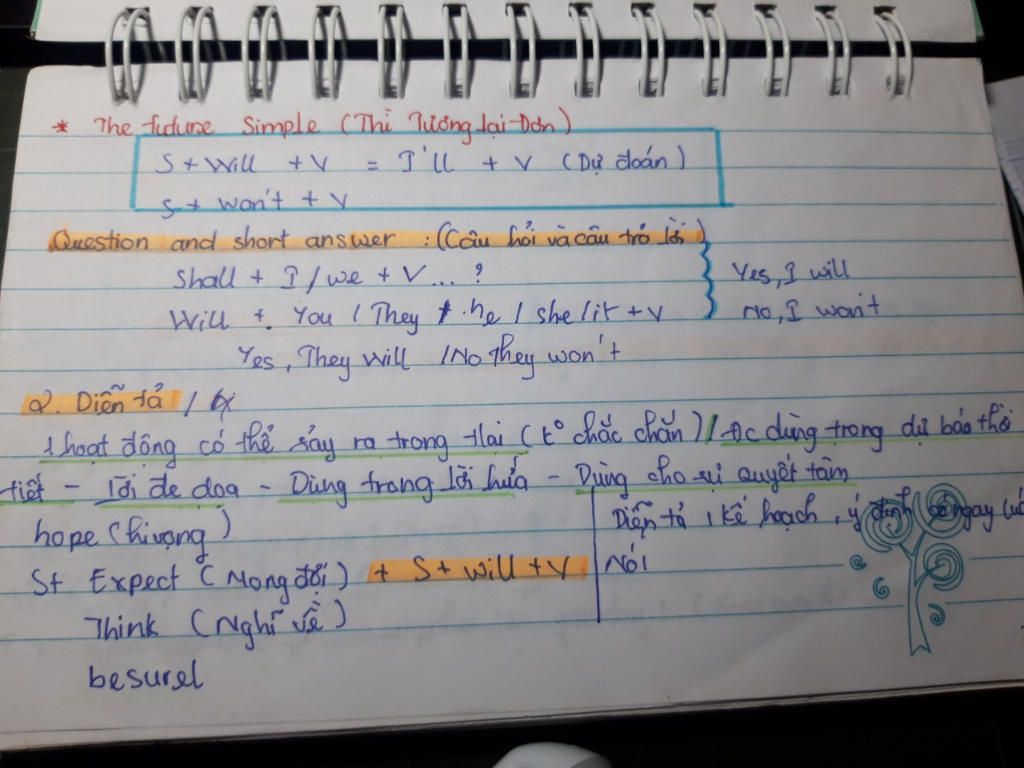 * The future Simple (Thì Tương lai Đơn)
S + Will + V = I'll + V (Dự đoán)
S + won't + V
Question and short answer : (Câu hỏi và câu trả lời)
Shall + I / we + V ... ?
Yes, I will
Will + You / They / he / she / it + V
No, I won't
Yes, They will / No They won't
2. Diễn tả /
1 hoạt động có thể sảy ra trong tlai (k° chắc chắn) / Đc dùng trong dự báo thời
tiết - lời đe dọa - Dùng trong lời hứa - Dùng cho sự quyết tâm
hope (hi vọng)
Diễn tả 1 kế hoạch, ý định ngay lúc
S + Expect (Mong đợi) + S + will + V
Nói
Think (Nghĩ về)
besurel